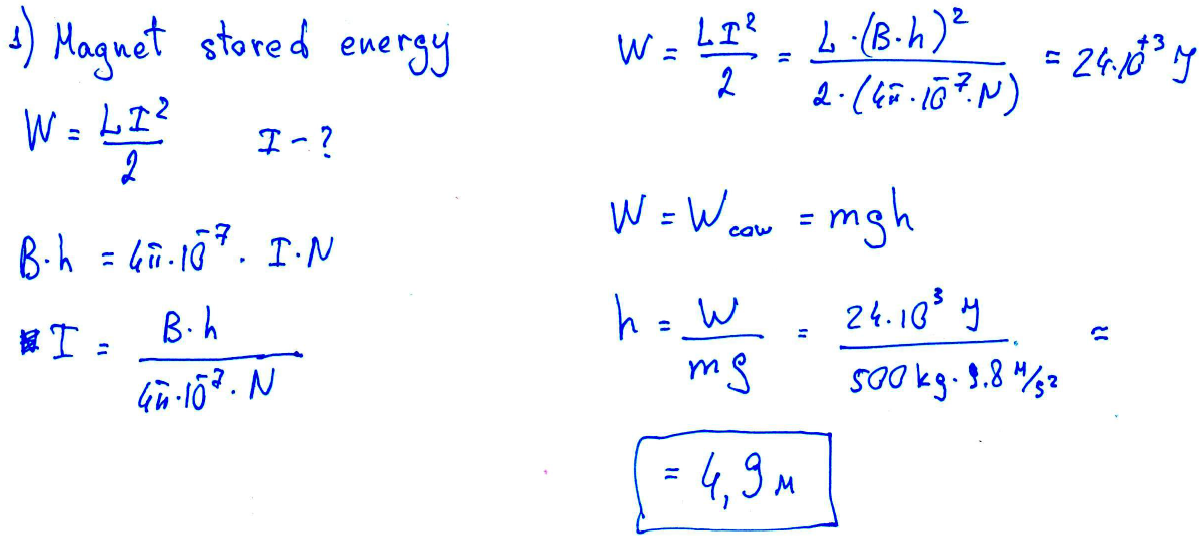 1) Magnet stored energy
W = LI²/2    I - ?
B·h = 4π·10⁻⁷ · I·N
I = B·h / 4π·10⁻⁷·N
W = LI²/2 = L·(B·h)² / 2·(4π·10⁻⁷·N) = 24·10⁺³ J
W = W cow = mgh
h = W/mg = 24·10³ J / 500 kg · 9.8 м/s² ≈
= 4,9 м